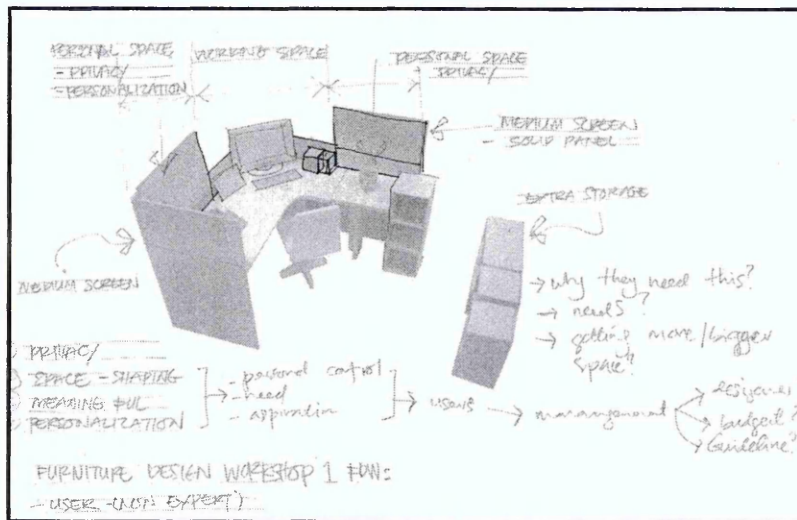 PERSONAL SPACE
- PRIVACY
- PERSONALIZATION
WORKING SPACE
PERSONAL SPACE
- PRIVACY
MEDIUM SCREEN
- SOLID PANEL
EXTRA STORAGE
MEDIUM SCREEN
→ why they need this?
→ needs?
→ getting more/bigger
space?
PRIVACY
SPACE-SHAPING
MEANINGFUL
PERSONALIZATION
- personal control
- need
- aspiration
users
management
designer
budget?
Guideline?
FURNITURE DESIGN WORKSHOP 1
- USER (NON EXPERT)